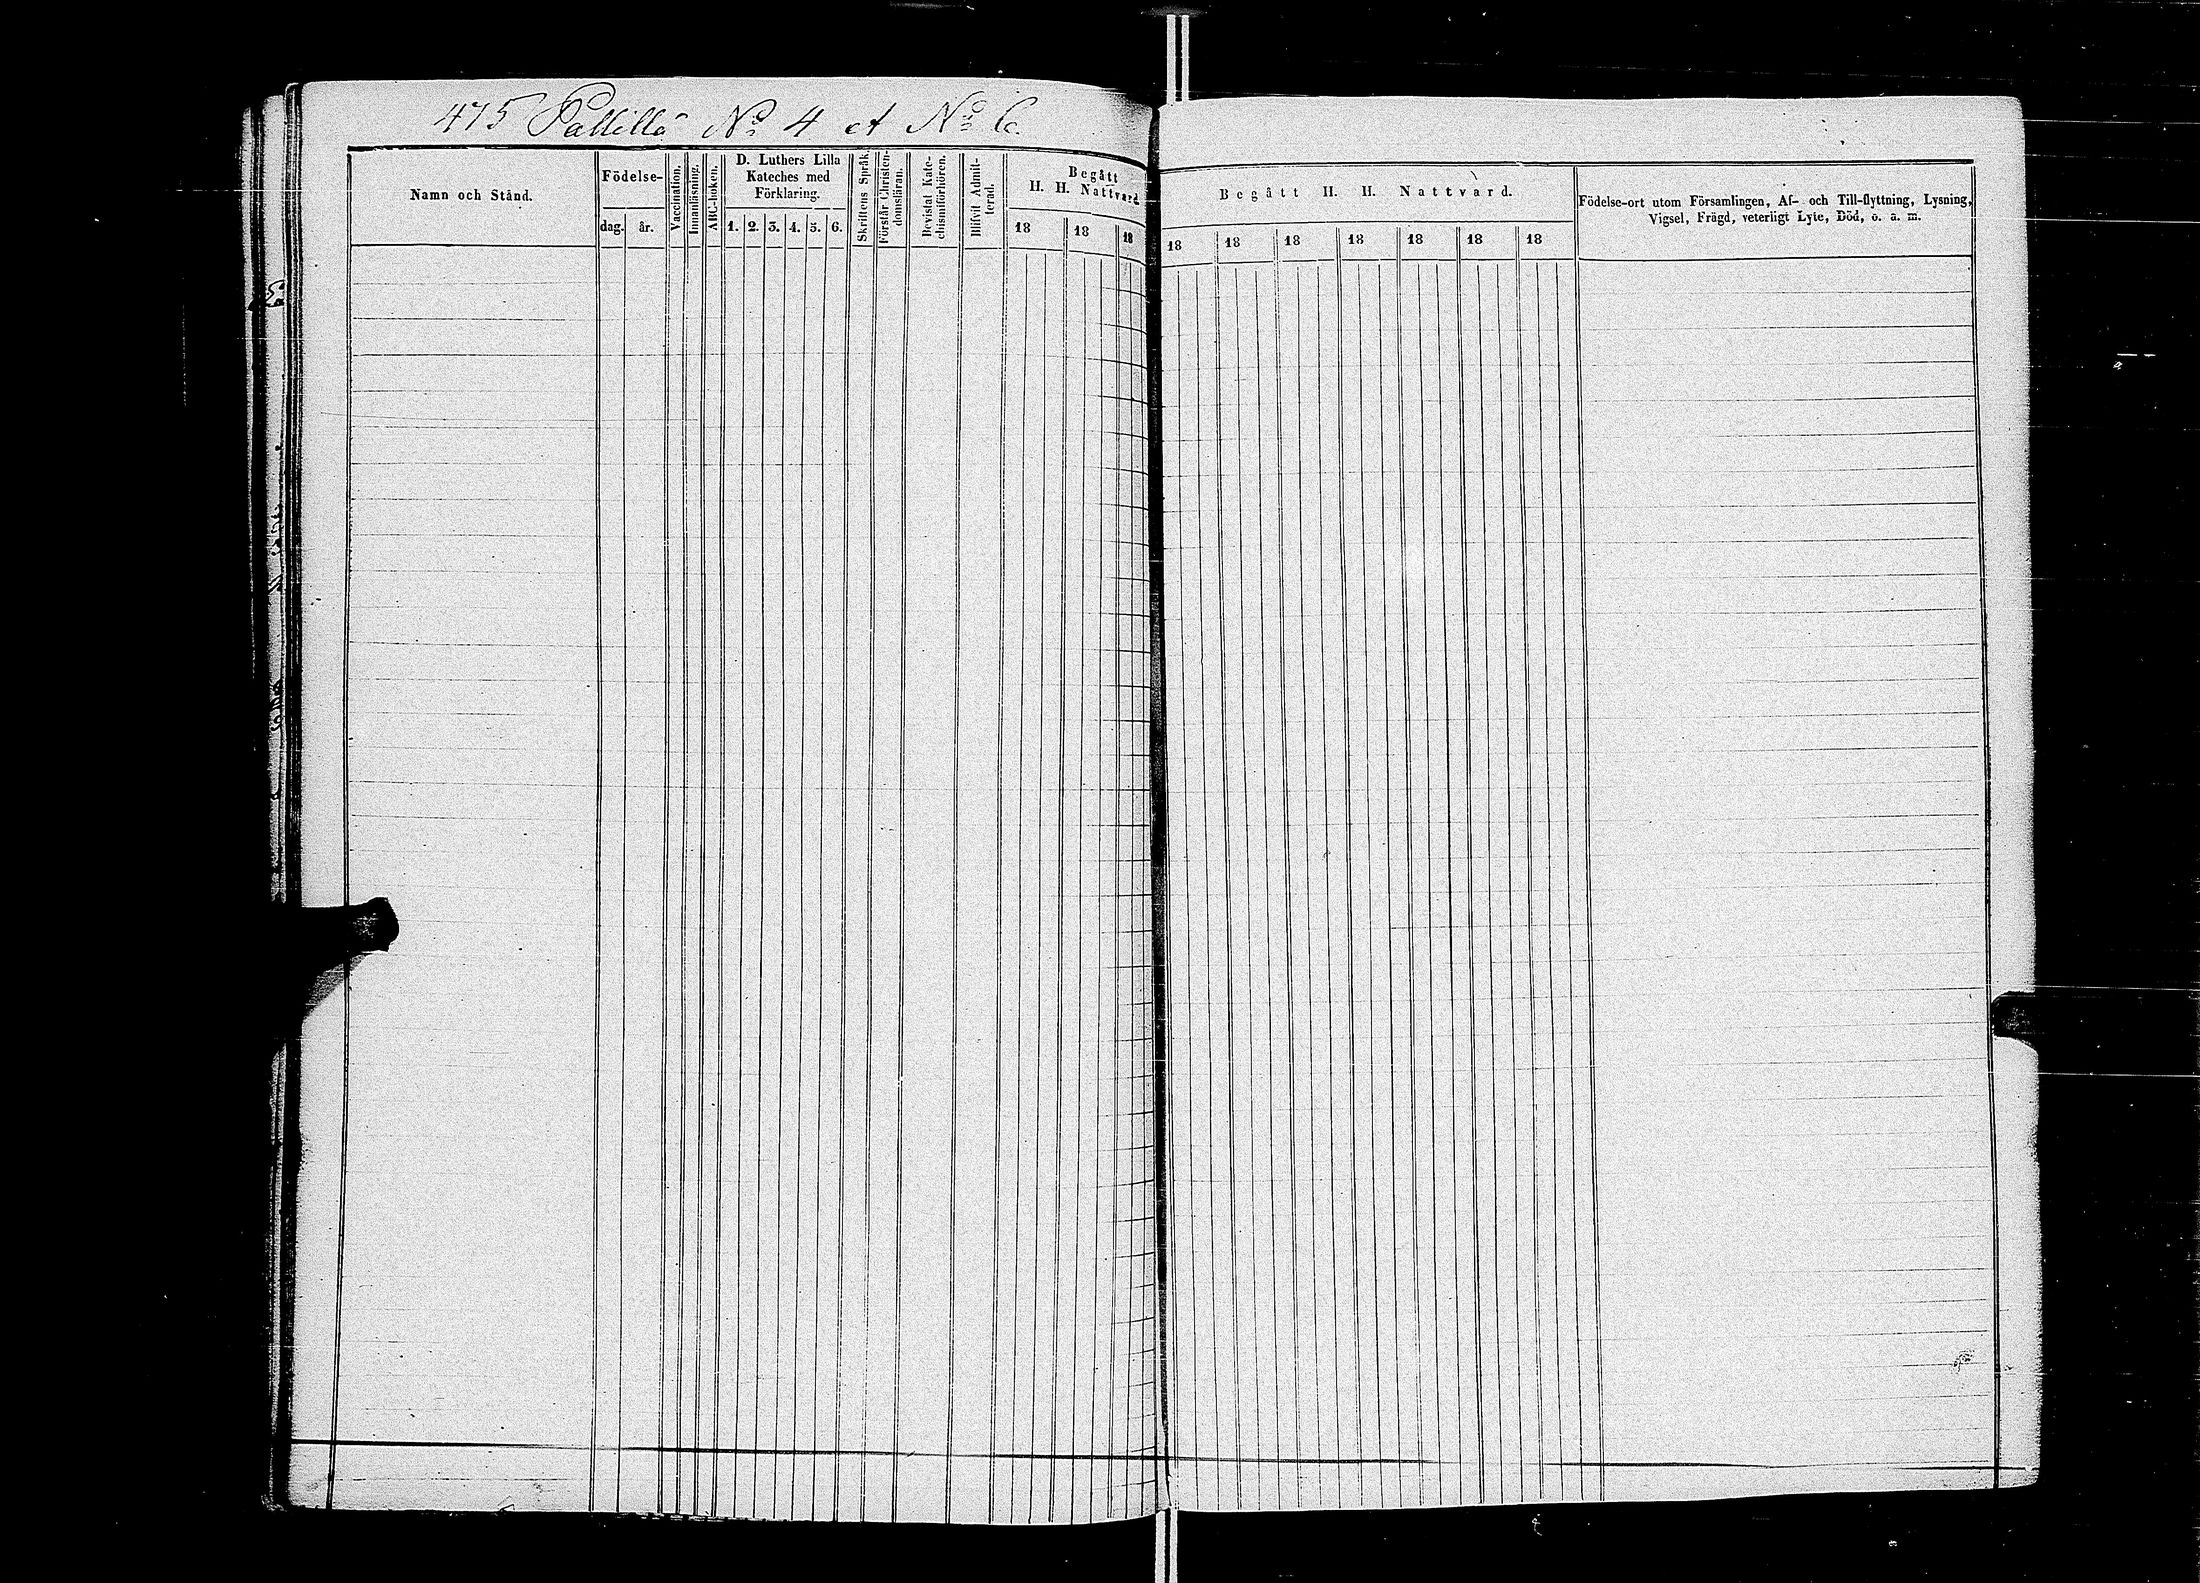 475 Pallilla No 4 et No 6.
Namn och Stånd.
Födelse-
dag. år.
Vaccination.
Innanläsning.
ABC-boken.
D. Luthers Lilla
Kateches med
Förklaring.
1. 2. 3. 4. 5. 6.
Skriftens Språk.
Förstår Christen-
domsläran.
Bevistat Kate-
chismiförhören.
Blifvit Admit-
terad.
Begått
H. H. Nattvard
18 18 18
Begått H. H. Nattvard.
18 18 18 18 18 18 18
Födelse-ort utom Församlingen, Af- och Till-flyttning, Lysning,
Vigsel, Frägd, veterligt Lyte, Död, o. a. m.